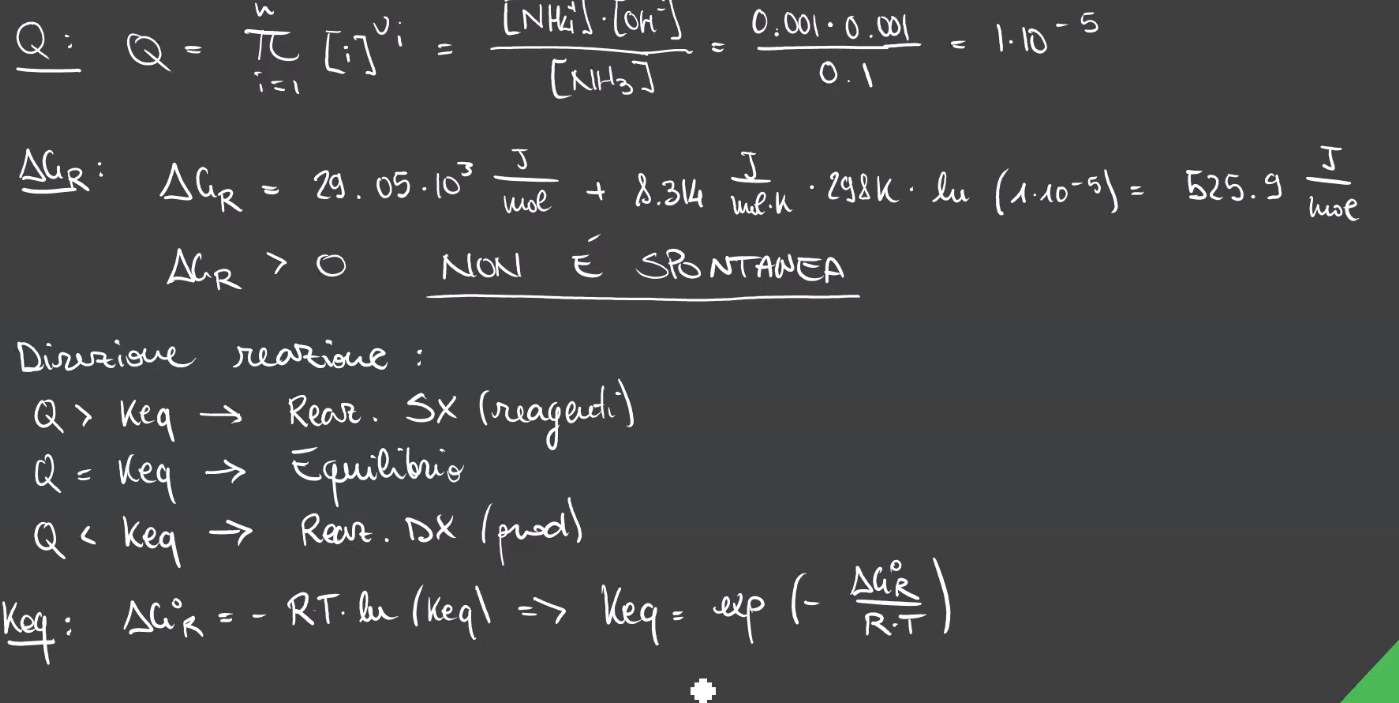 Q: Q = π n i=1 [i]^νi = [NH4+]·[OH-] / [NH3] = 0.001·0.001 / 0.1 = 1·10^-5
ΔGR: ΔGR = 29.05·10^3 J/mol + 8.314 J/mol·K · 298K · ln (1·10^-5) = 525.9 J/mol
ΔGR > 0 NON É SPONTANEA
Direzione reazione:
Q > Keq → Reaz. SX (reagenti)
Q = Keq → Equilibrio
Q < Keq → Reaz. DX (prod)
Keq: ΔG°R = - R·T· ln (Keq) => Keq = exp (- ΔG°R / R·T)